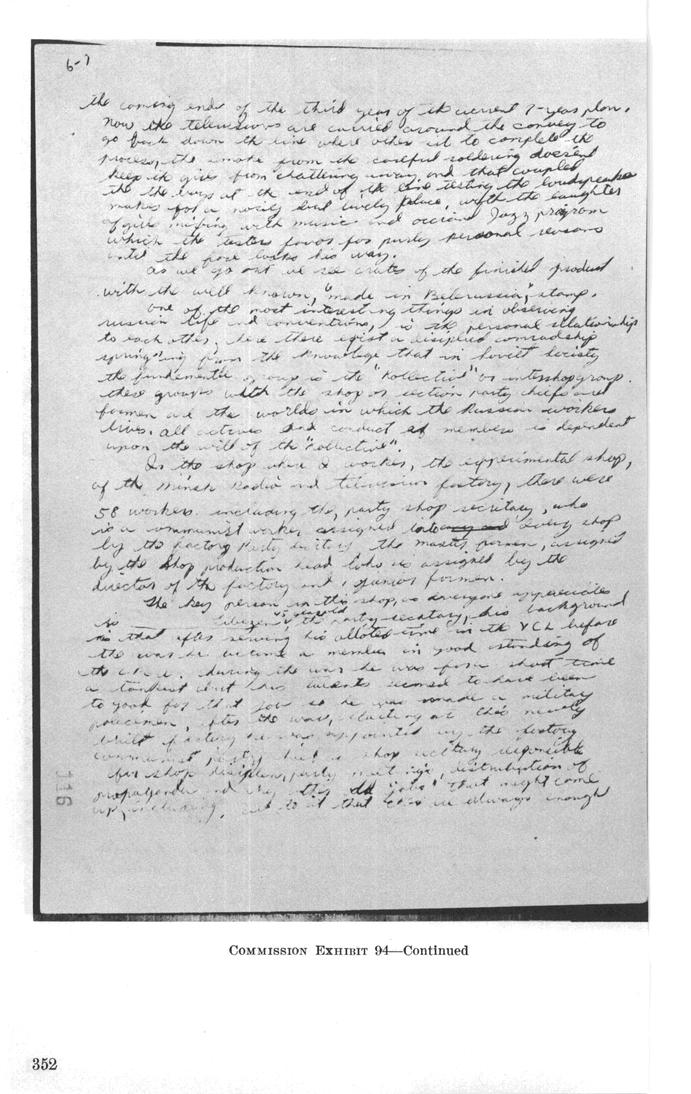 6-7
the coming ends of the third year of the current 7-year plan.
Now the televisions are carried around the convey to
go back down the line where others sit to complete the
process, the smoke from the careful soldering doesent
keep the girls from chattering away, and that coupled
the the boys at the end of the line testing the loudspeakes
makes for a noisy but lively place, with the laughter
of girls mixing with music and occiond Jazz program
which the testers favos for purly personal reasons
until the looks his way.
As we go out we see crates of the finished product
with the well known, "made in Belorussia", stamp.
one of the most interesting things in observing
russian life and conventions, is the personal relationship
to each other, here there exist a disciplied comradship
springing from the knowledge that in Soviet society
the fundementle group is the "Kollective" or intershopgroup.
these groups with the shop or section party chiefs and
formen are the worlds in which the Russian workers
lives. all activies and conduct of members is dependent
upon the will of the "Kollective".
In the shop where I worked, the experimental shop,
of the Minsk Radio and television factory, there were
58 workers including the, party shop secretary, who
is a communist worker assigned to every shop
by the factory Party the master person, assigned
by the Shop production head who is assigned by the
director of the factory and, junior formen.
The key person in this shop, as everyone appreciates
is 45 yearold the party secretary, his background
is that after serving his alloted time in the YCL before
the war he became a member in good standing of
the during the war he was for a short time
a tankist but his talents seemed to have been
to good for that job so he was made a military
policemen, after the war, starting at this newly
built factory he was appointed by the factory
communist party chief is shop secretary responsible
for shop disciplen, party meetings, distribution of
propaganda and any other odd "jobs" that might come
up, including, see to it that their are always enough
116
COMMISSION EXHIBIT 94—Continued
352